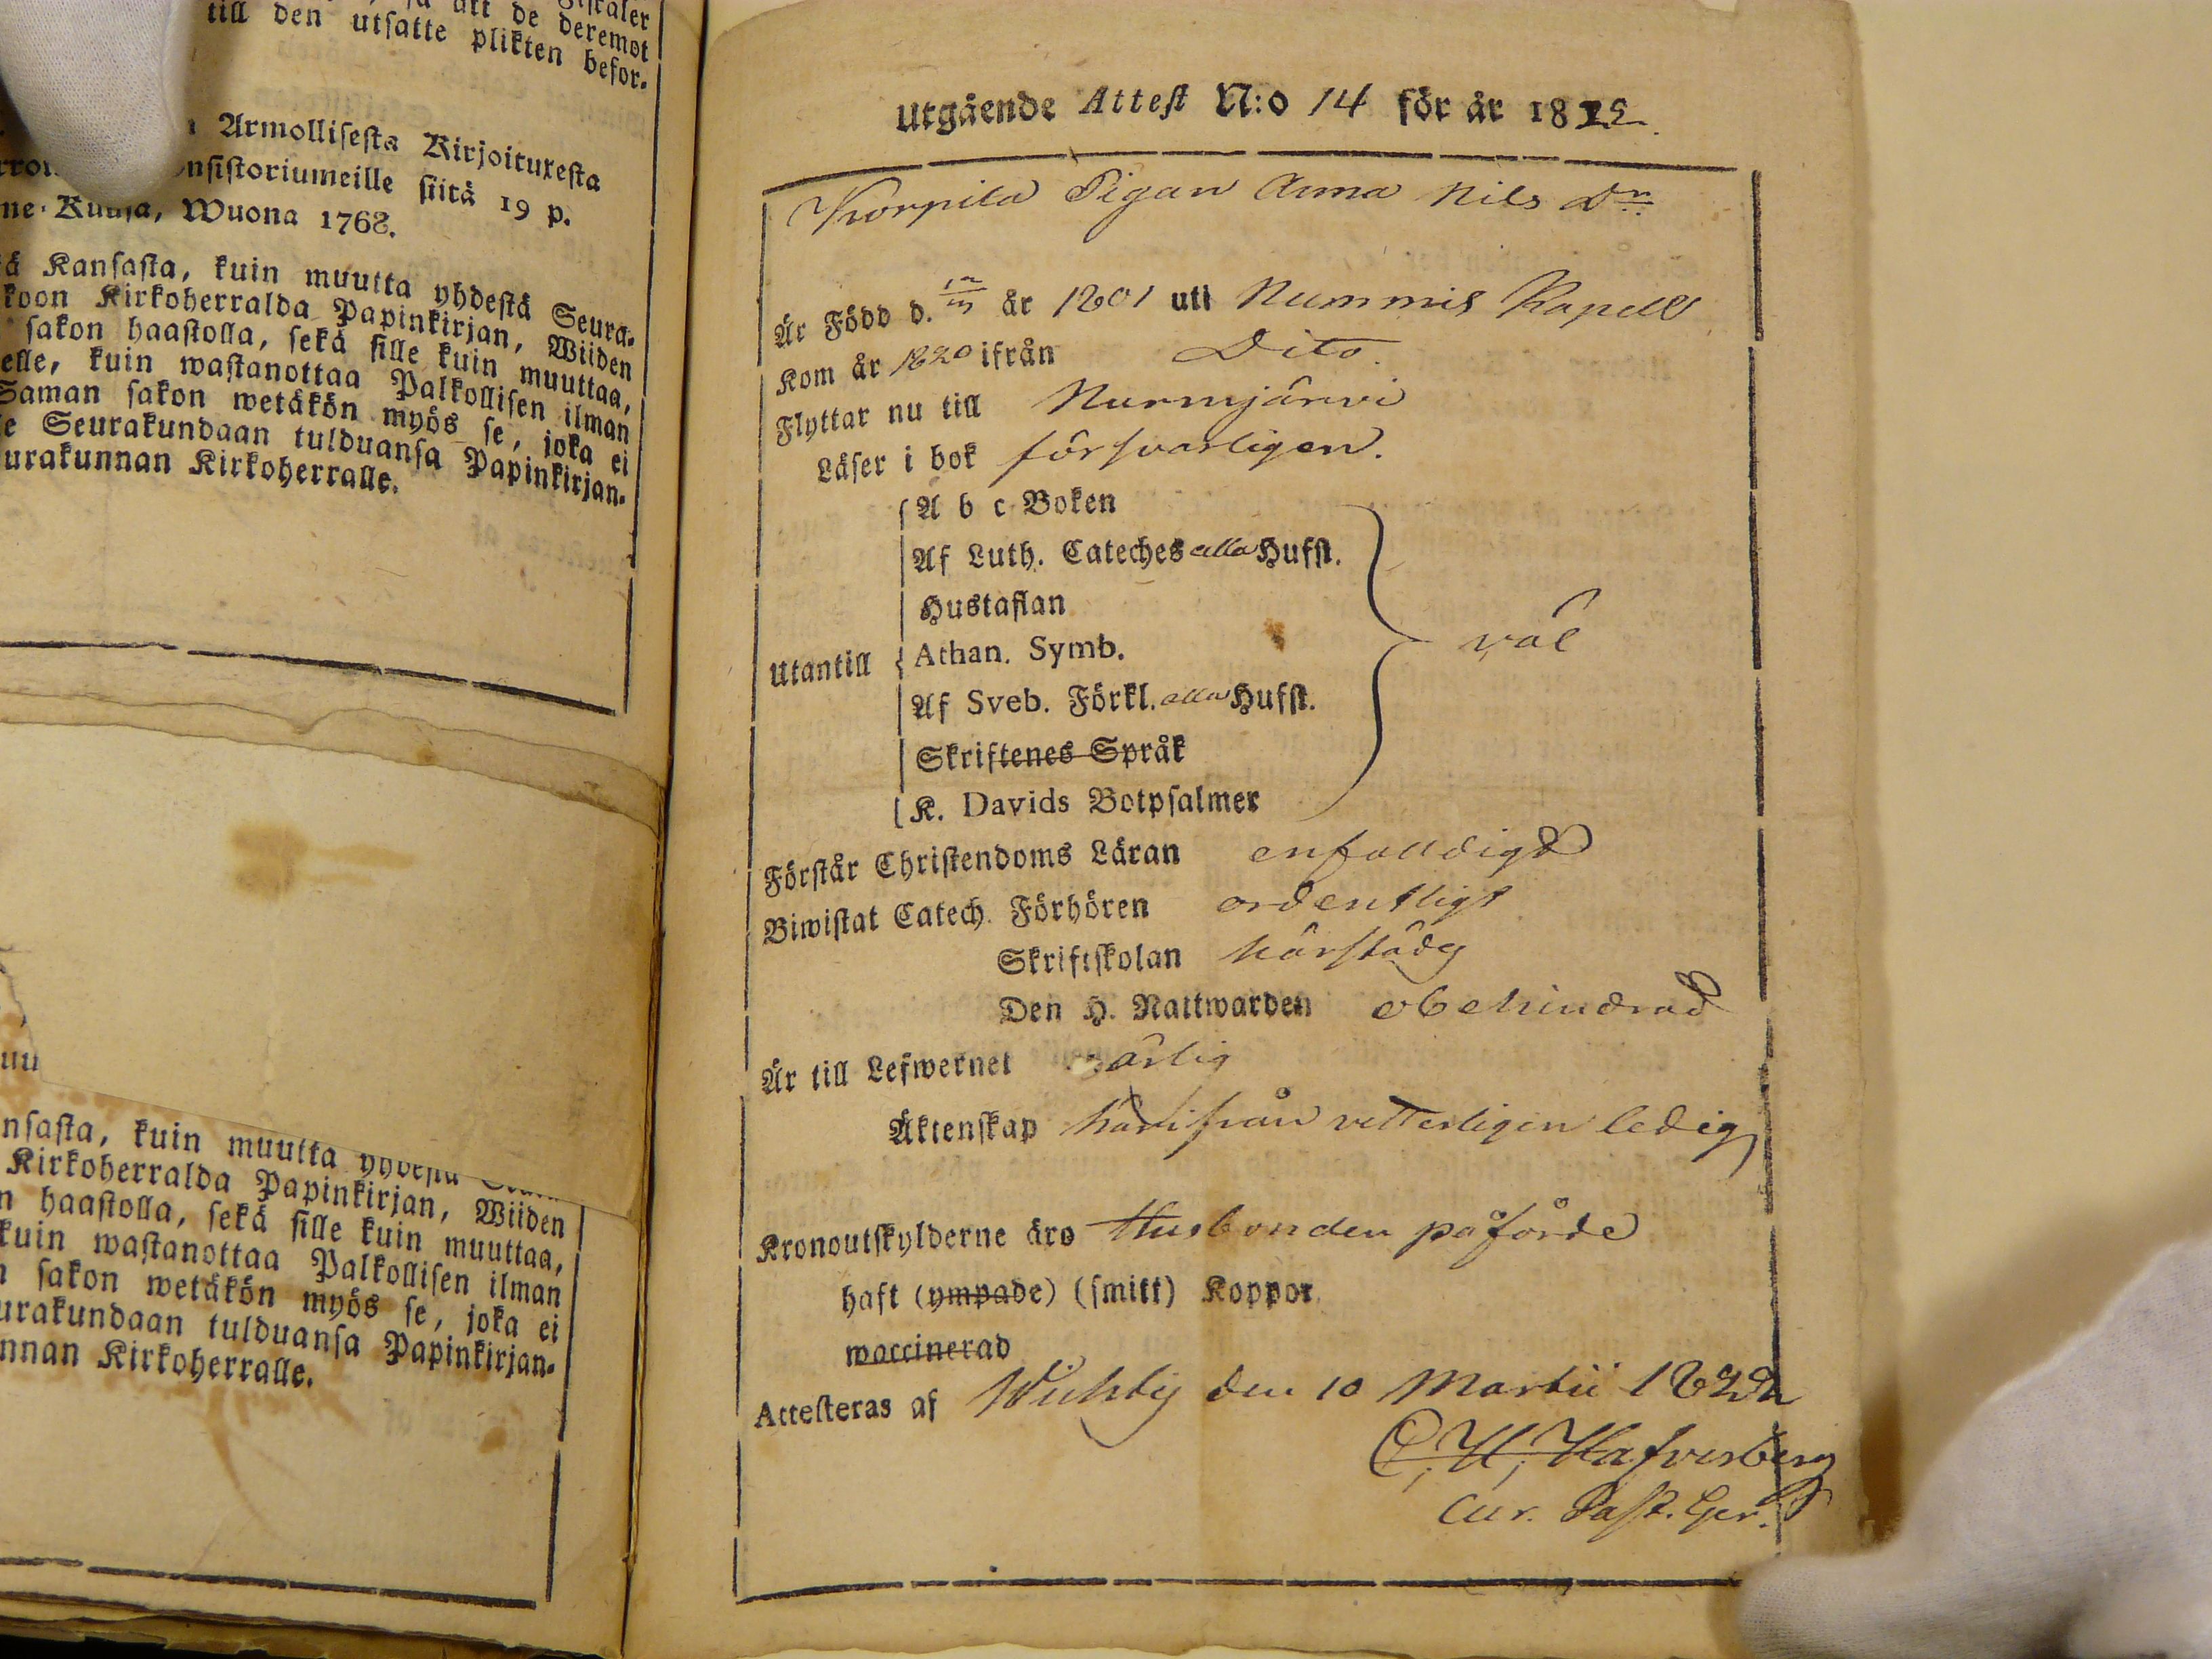 att de deremot
till den utsatte plikten befor.
Armollisesta Kirjoituxesta
nsistoriumeille siitä 19 p.
Wuona 1768.
ä Kansasta, kuin muutta yhdestä Seura-
koon Kirkoherralda Papinkirjan, Wiiden
sakon haastolla, sekä sille kuin muuttaa,
elle, kuin wastanottaa Palkollisen ilman
Saman sakon wetäkön myös se, joka ei
e Seurakundaan tulduansa Papinkirjan-
urakunnan Kirkoherralle.
uu
nsasta, kuin muutta yhdestä
Kirkoherralda Papinkirjan, Wiiden
n haastolla, sekä sille kuin muuttaa,
kuin wastanottaa Palkollisen ilman
n sakon wetäkön myös se, joka ei
urakundaan tulduansa Papinkirjan-
nnan Kirkoherralle.
Utgående Attest N:o 14 för år 1822.
Korpila Pigan Anna Nils Dr
Är Född d. år 1801 uti Nummis Kapell
Kom år 1820 ifrån Dito.
Flyttar nu till Nurmjärwi
Läser i bok försvarligen.
A b c Boken
Af Luth. Cateches alla Hufst.
Hustaflan
Utantill Athan. Symb. väl
Af Sveb. Förkl. alla Hufst.
Skriftenes Språk
K. Davids Botpsalmer
Förstår Christendoms Läran enfaldigt
Biwistat Catech. Förhören ordentligt
Skriftskolan härstädes
Den H. Nattwarden obehindrad
Är till Lefwernet ärlig
Äktenskap härifrån vetterligen ledig
Kronoutskylderne äro Husbonden påförde
haft (ympade) (smitt) Koppor
waccinerad
Attesteras af Wichtis den 10 Martii 1822
C. H. Hafverberg
Cur. Past. Ger.